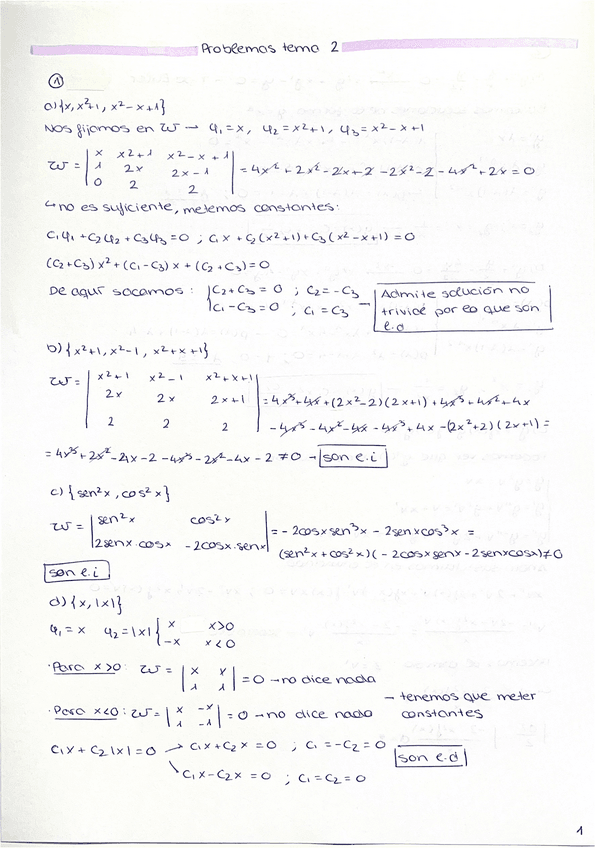 Problemas tema 2
①
a) {x, x²+1, x²-x+1}
Nos fijamos en W → φ₁=x, φ₂=x²+1, φ₃=x²-x+1
W = | x x²+1 x²-x+1 |
| 1 2x 2x-1 | = 4x²+2x²-2x+2-2x²-2-4x²+2x=0
| 0 2 2 |
↳no es suficiente, metemos constantes:
C₁φ₁+C₂φ₂+C₃φ₃=0 ; C₁x+C₂(x²+1)+C₃(x²-x+1)=0
(C₂+C₃)x²+(C₁-C₃)x+(C₂+C₃)=0
De aquí sacamos: { C₂+C₃=0 ; C₂=-C₃
C₁-C₃=0 ; C₁=C₃ → Admite solución no
trivial por lo que son
l.d
b) {x²+1, x²-1, x²+x+1}
W = | x²+1 x²-1 x²+x+1 |
| 2x 2x 2x+1 | = 4x³+4x+(2x²-2)(2x+1)+4x³+4x²+4x
| 2 2 2 | -4x³-4x²-4x-4x³+4x-(2x²+2)(2x+1)=
= 4x³+2x²-4x-2-4x³-2x²-4x-2≠0 → son l.i
c) {sen²x, cos²x}
W = | sen²x cos²x | = -2cosxsen³x-2senxcos³x =
| 2senx·cosx -2cosx·senx | (sen²x+cos²x)(-2cosxsenx-2senxcosx)≠0
son l.i
d) {x, |x|}
φ₁=x φ₂=|x| { x x>0
-x x<0
·Para x>0: W = | x x |
| 1 1 | =0 →no dice nada
→ tenemos que meter
·Para x<0: W = | x -x |
| 1 -1 | =0 →no dice nada constantes
C₁x+C₂|x|=0 → C₁x+C₂x=0 ; C₁=-C₂=0 son l.d
↘ C₁x-C₂x=0 ; C₁=C₂=0
1